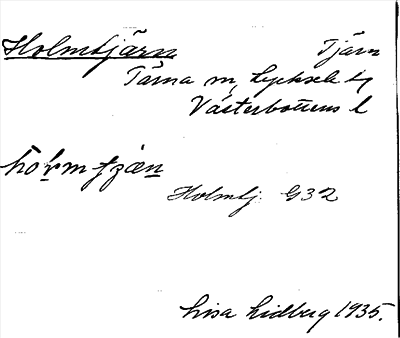 Holmtjärn Tjärn
Tärna sn, Lycksele lm
Västerbottens l
Holmtj. G32
Lisa Lidberg 1935.